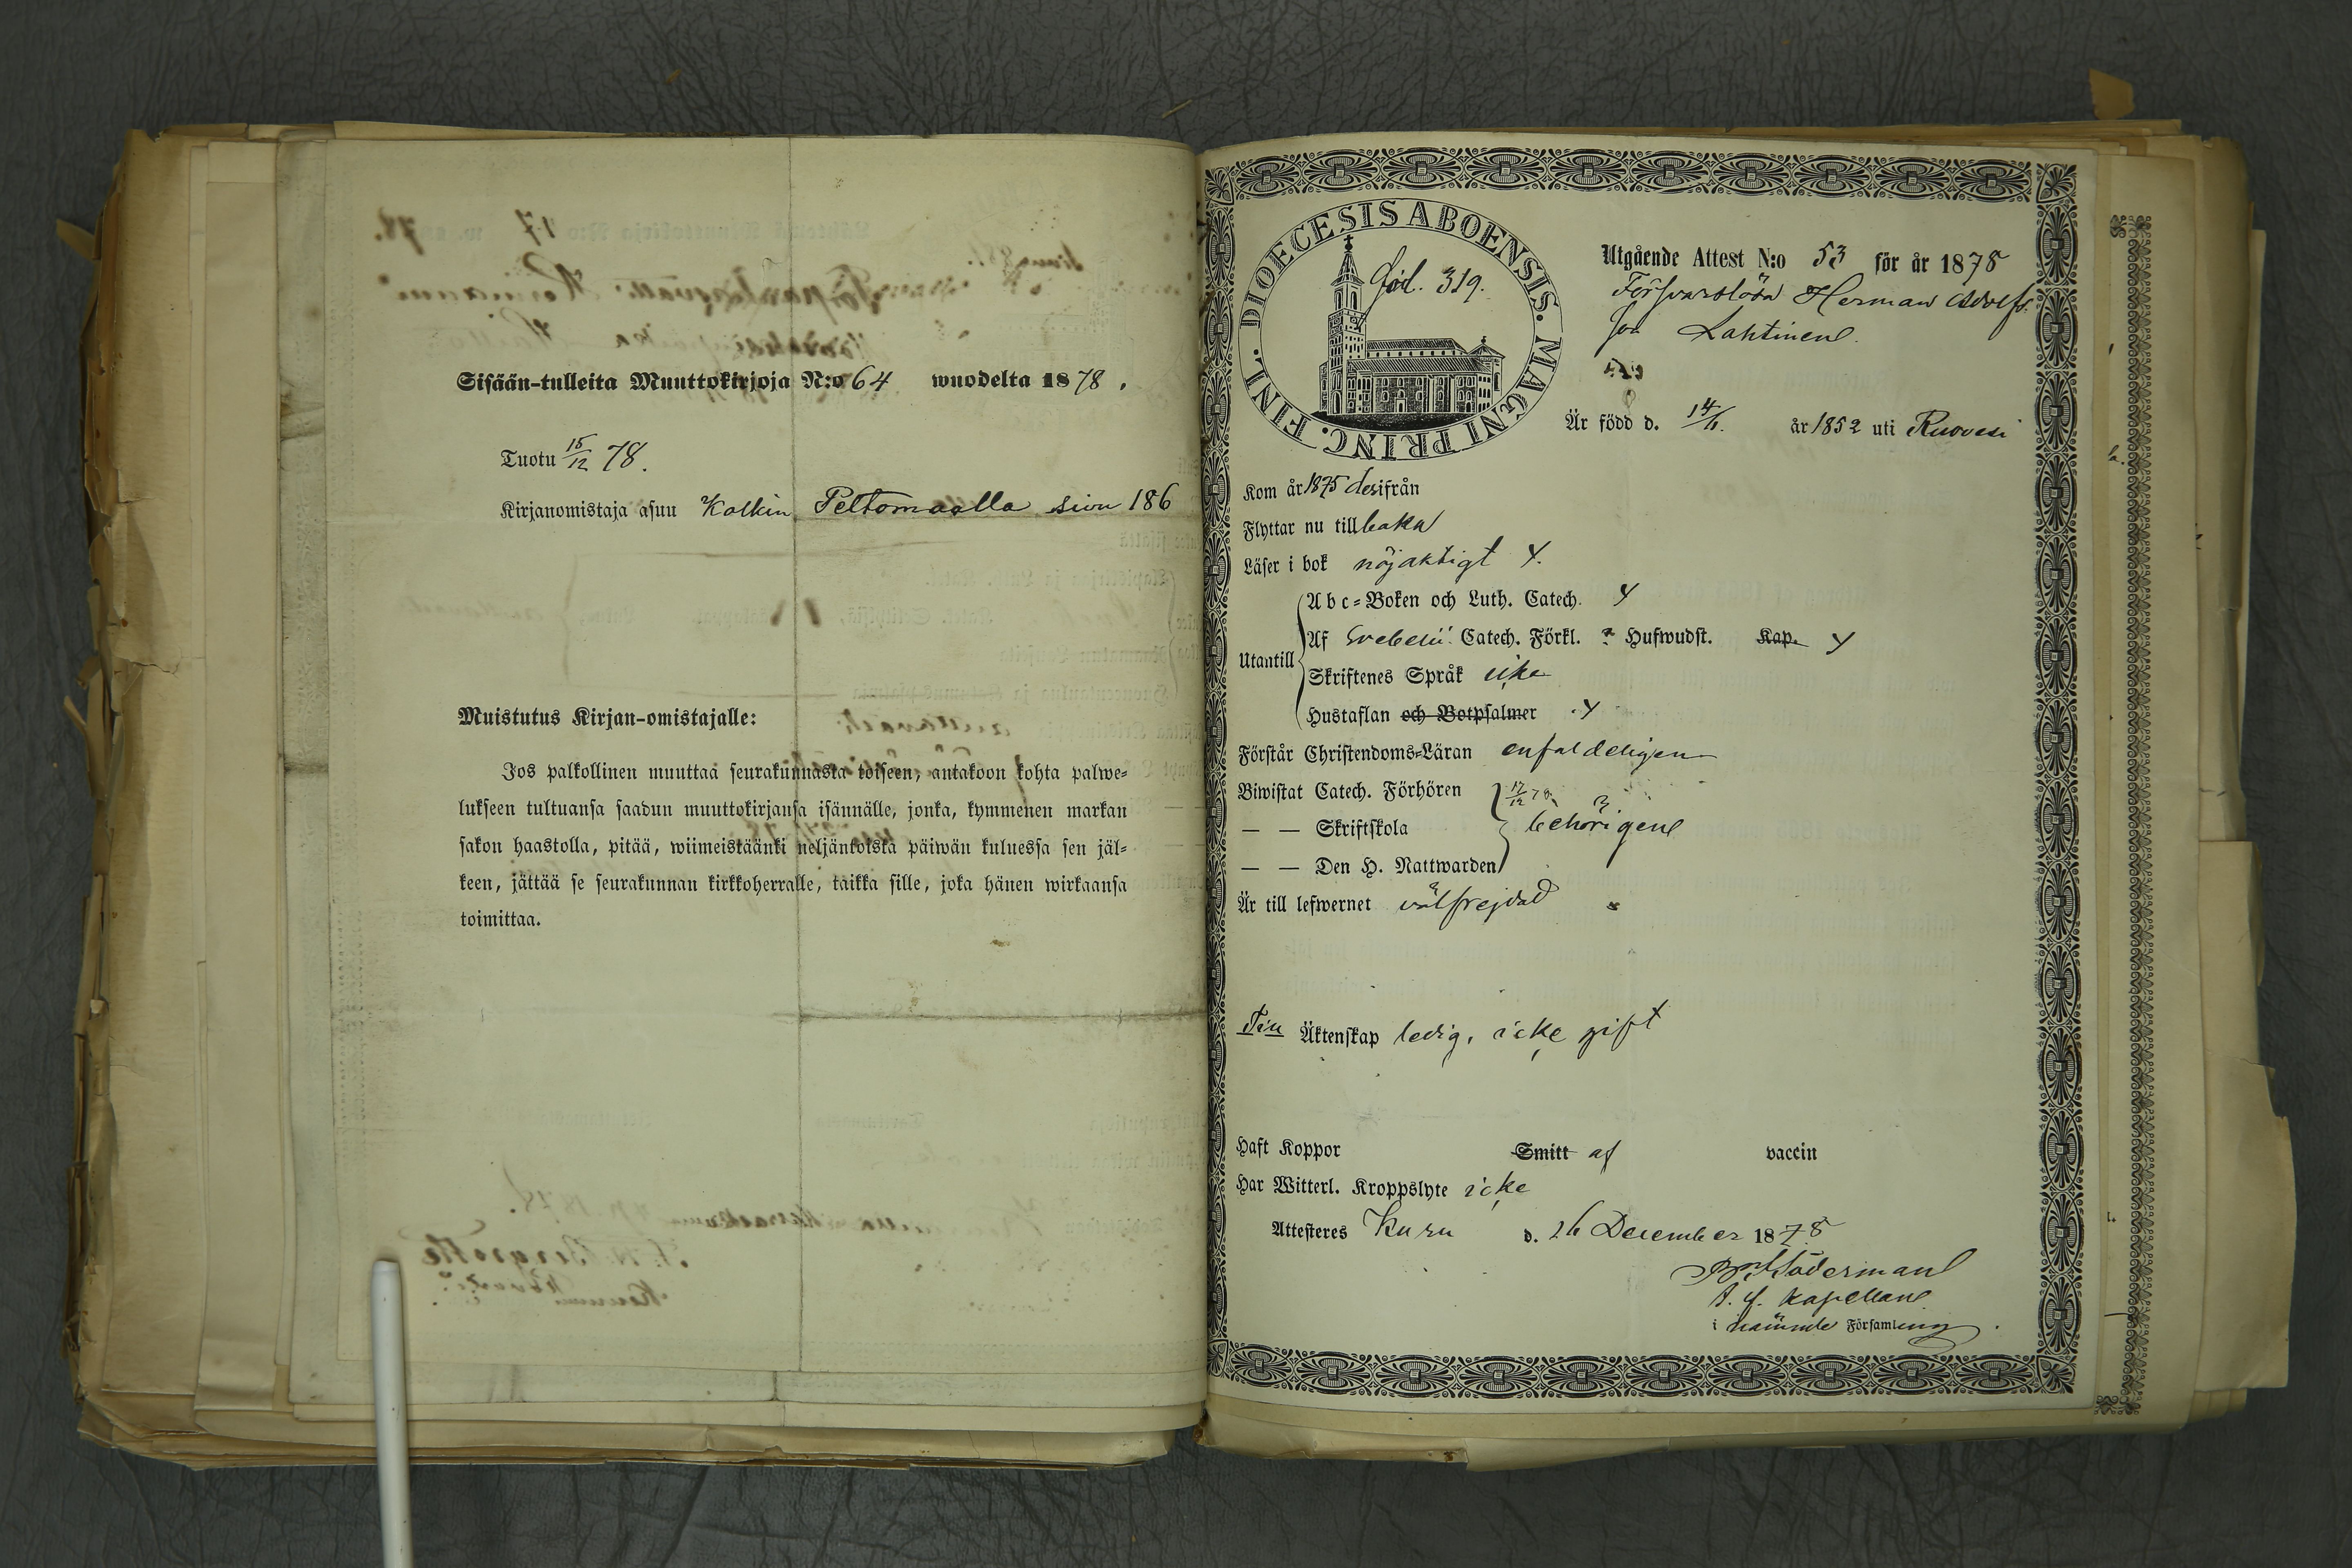 Sisään-tulleita Muuttokirjoja N:o 64 wuodelta 1878.
Tuotu 15/12 78.
Kirjanomistaja asuu Kalkin Peltomaalla sivu 186
Muistutus Kirjan-omistajalle:
Jos palkollinen muuttaa seurakunnasta toiseen, antakoon kohta palwe-
lukseen tultuansa saadun muuttokirjansa isännälle, jonka, kymmenen markan
sakon haastolla, pitää, wiimeistäänki neljäntoista päiwän kuluessa sen jäl-
keen, jättää se seurakunnan kirkkoherralle, taikka sille, joka hänen wirkaansa
toimittaa.
DIOECESIS ABOENSIS. MAGNI PRINC. FINL.
fol. 319.
Utgående Attest N:o 53 för år 1878
Försvarslösa Herman Adolfs
son Lahtinen
Är född d. 14/6. år 1852 uti Ruovesi
Kom år 1875 desifrån
Flyttar nu tillbaka
Läser i bok nöjaktigt Y.
Utantill
Abc=Boken och Luth. Catech. Y
Af Svebelii Catech. Förkl. Hufwudst. Kap. Y
Skriftenes Språk icke
Hustaflan och Botpsalmer Y
Förstår Christendoms=Läran enfaldeligen
Biwistat Catech. Förhören
— — Skriftskola behörigen
— — Den H. Nattwarden
Är till lefwernet välfrejdad
Till Äktenskap ledig, icke gift
Haft Koppor Smitt af vaccin
Har Witterl. Kroppslyte icke
Attesteres Kuru d. 16 December 1878
Söderman
Kapellan
i nämnde Församling.